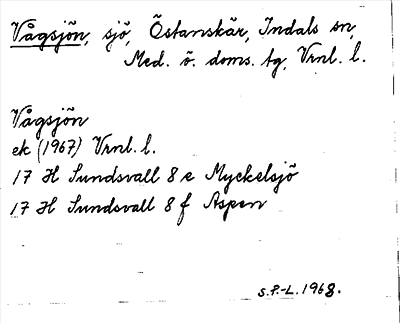 Vågsjön, sjö, Östanskär, Indals sn,
Med. ö. doms. tg, Vrnl. l.
Vågsjön
ek (1967) Vrnl. l.
17 H Sundsvall 8 e Myckelsjö
17 H Sundsvall 8 f Aspen
S.P.-L. 1968.